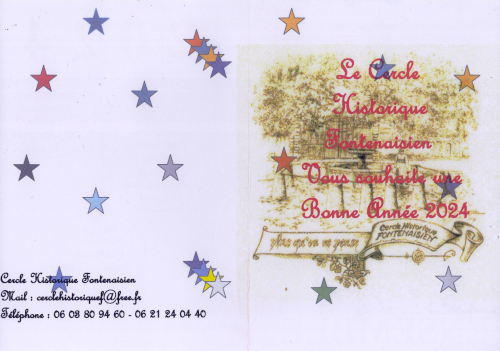 Le Cercle
Historique
Fontenaisien
Vous souhaite une
Bonne Année 2024
plus qu'on ne pense
Cercle Historique
FONTENAISIEN
Cercle Historique Fontenaisien
Mail : cerclehistoriquef@free.fr
Téléphone : 06 03 80 94 60 - 06 21 24 04 40